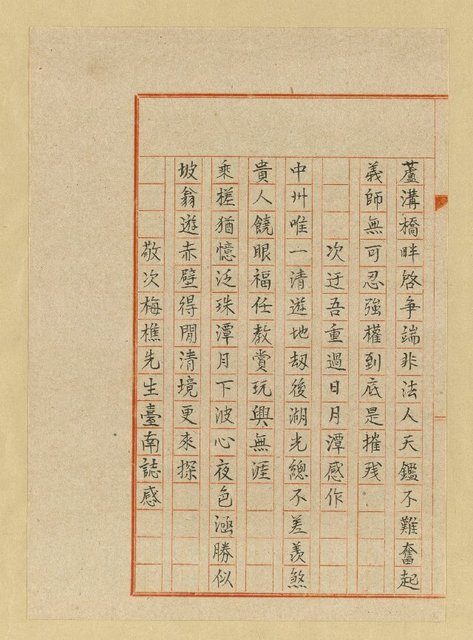 蘆溝橋畔啓爭端非法人天鑑不難奮起
義師無可忍強權到底是摧残
次迂吾重過日月潭感作
中州唯一清遊地劫後湖光總不差羨煞
貴人饒眼福任教賞玩興無涯
乘槎猶憶泛珠潭月下波心夜色涵勝似
坡翁遊赤壁得閒清境更來探
敬次梅樵先生臺南誌感